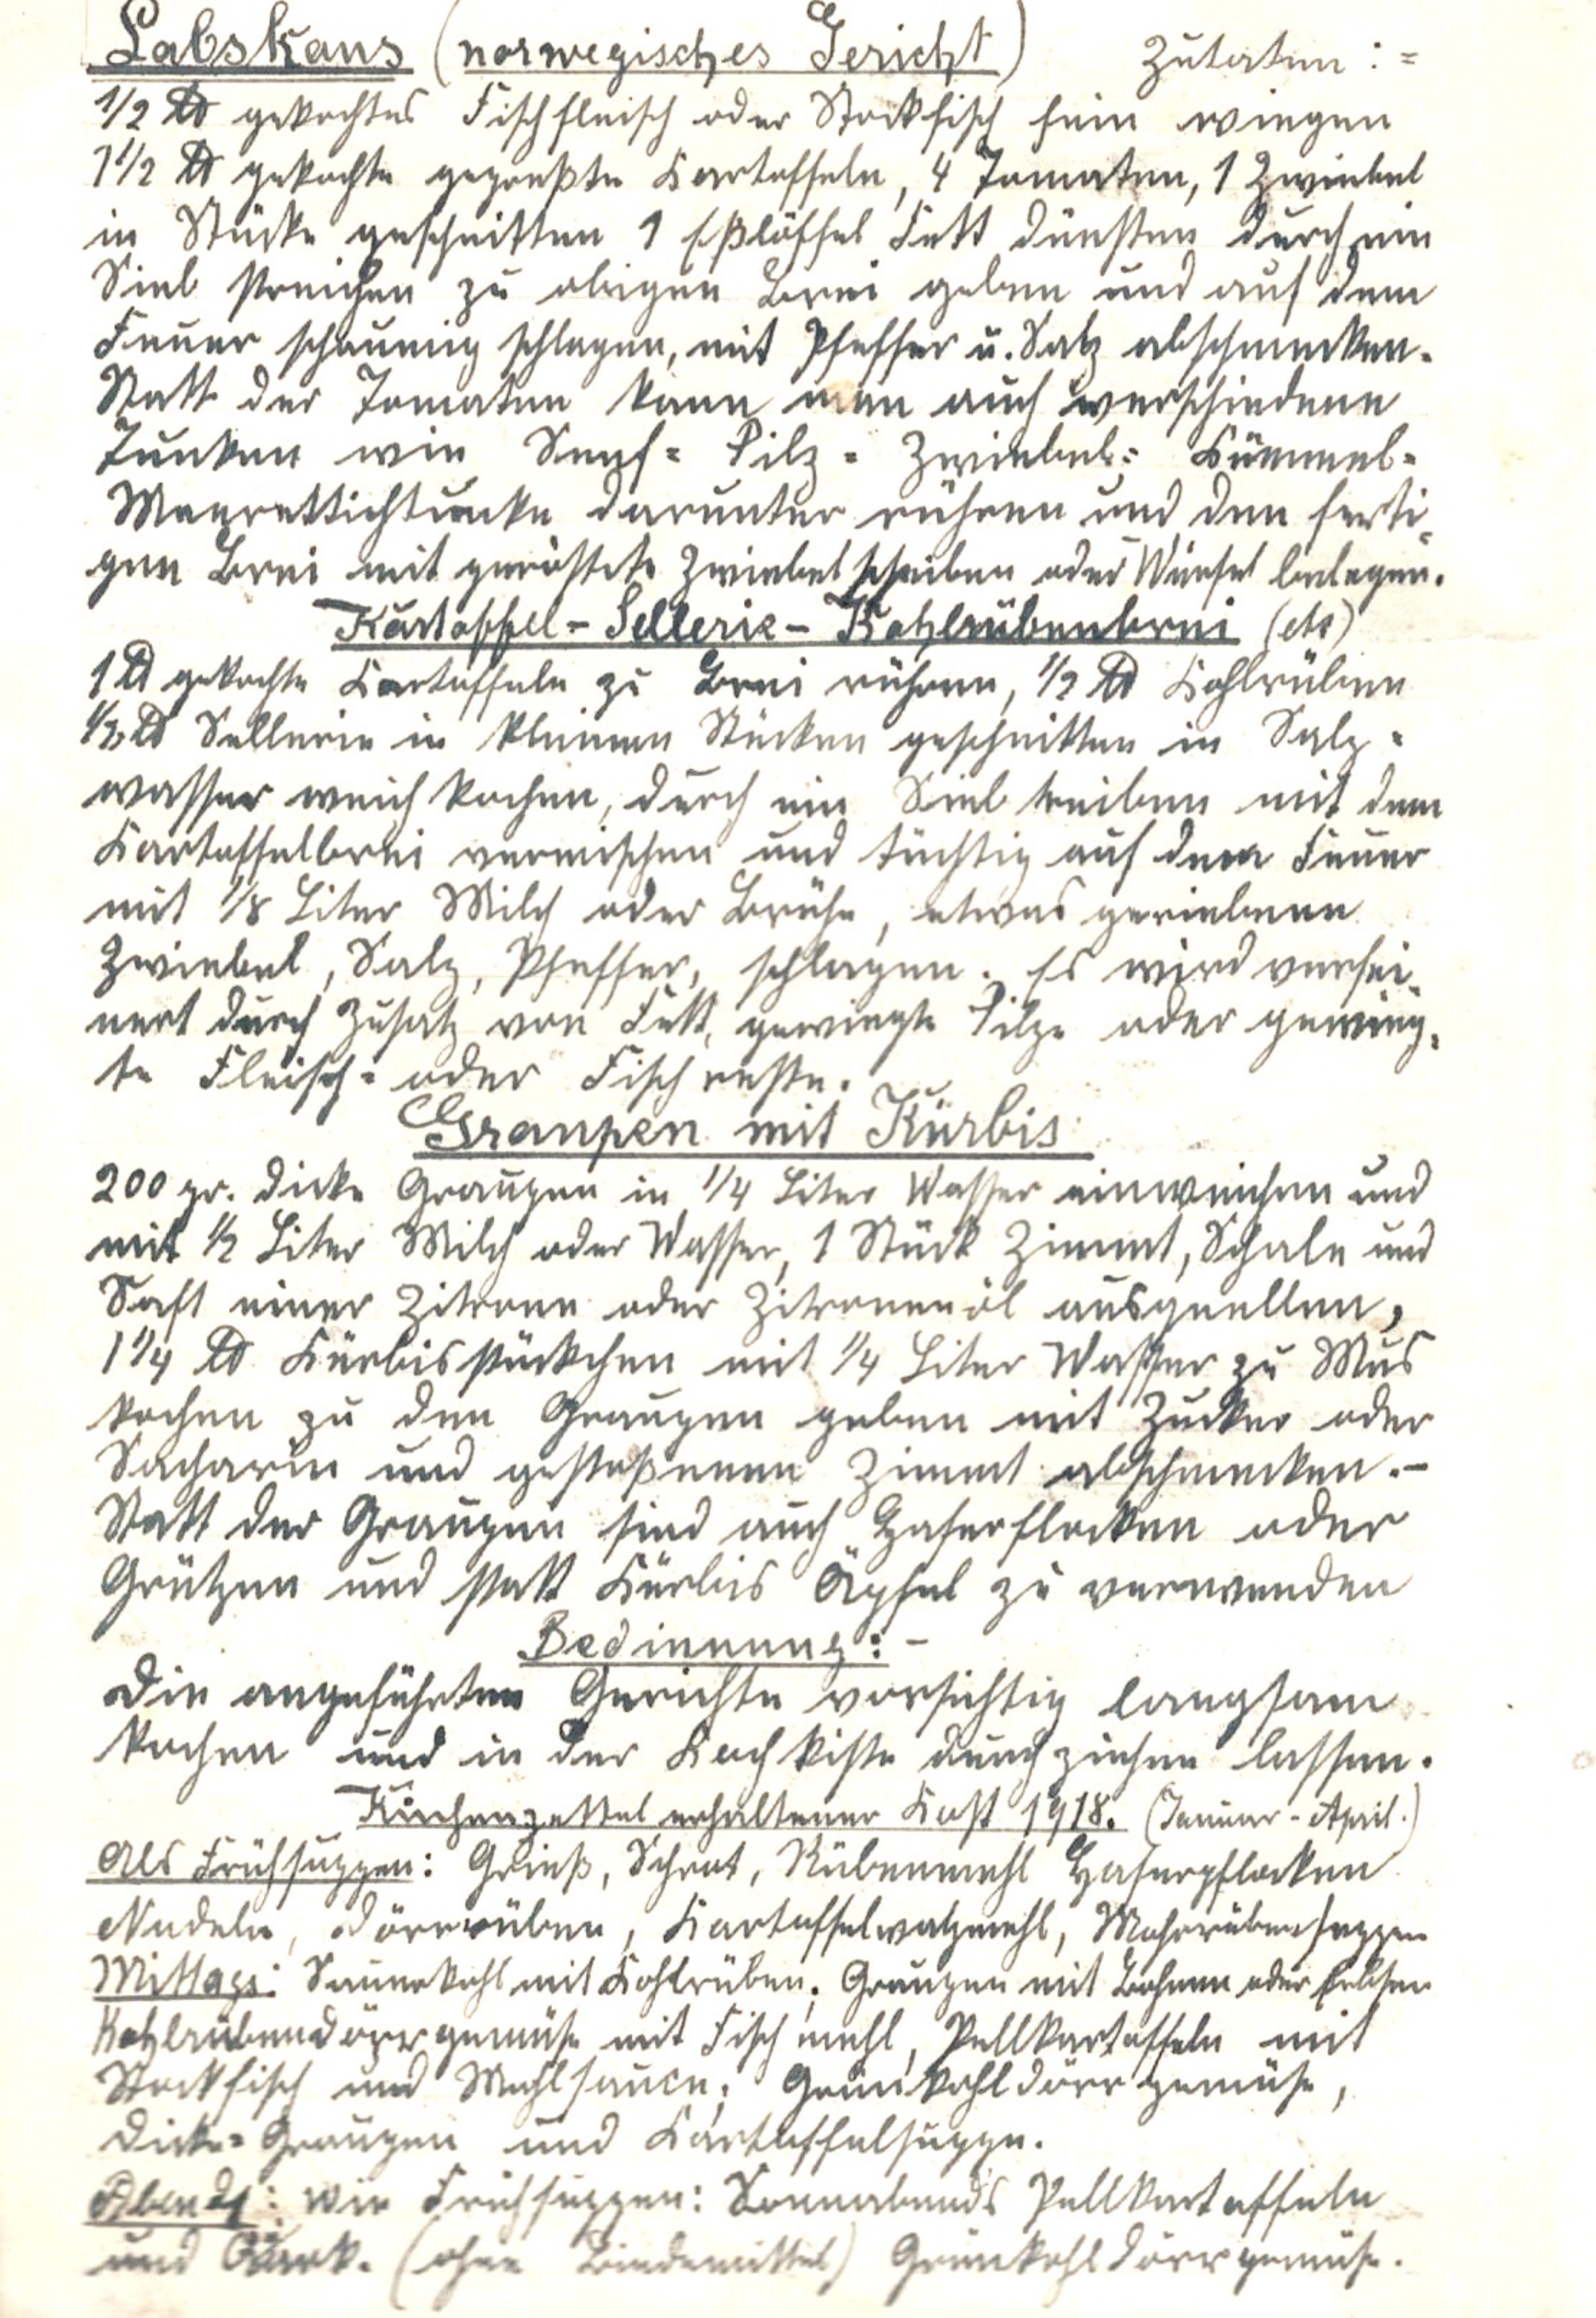 Labskaus (norwegisches Gericht) Zutaten :=
1/2 ℔ gekochtes Fischfleisch oder Stockfisch fein wiegen
1 1/2 ℔ gekochte gepreßte Kartoffeln, 4 Tomaten, 1 Zwiebel
in Stücke geschnitten 1 Eßlöffel Fett dünsten durch ein
Sieb streichen zu obigen Brei geben und auf dem
Feuer schaumig schlagen, mit Pfeffer u. Salz abschmecken.
Statt der Tomaten kann man auch verschiedene
Tunken wie Senf= Pilz= Zwiebel= Kümmel=
Meerrettichtunke darunter rühren und den ferti=
gen Brei mit geröstete Zwiebelscheiben oder Würfel belegen.
Kartoffel-Sellerie-Kohlrübenbrei (etc)
1 ℔ gekochte Kartoffeln zu Brei rühren, 1/2 ℔ Kohlrüben
1/2 ℔ Sellerie in kleinen Stücken geschnitten in Salz=
wasser weich kochen, durch ein Sieb treiben mit dem
Kartoffelbrei vermischen und tüchtig auf dem Feuer
mit 1/8 Liter Milch oder Brühe, etwas geriebene
Zwiebel, Salz, Pfeffer, schlagen. Es wird verfei=
nert durch Zusatz von Fett, gewiegte Pilze oder gewieg=
te Fleisch= oder Fischreste.
Graupen mit Kürbis
200 gr. dicke Graupen in 1/4 Liter Wasser einweichen und
mit 1/2 Liter Milch oder Wasser, 1 Stück Zimmt, Schale und
Saft einer Zitrone oder Zitronenöl ausquellen,
1 1/4 ℔ Kürbisstückchen mit 1/4 Liter Wasser zu Mus
kochen zu den Graupen geben mit Zucker oder
Sacharin und gestoßenen Zimmt abschmecken.-
Statt der Graupen sind auch Haferflocken oder
Grützen und statt Kürbis Äpfel zu verwenden
Bedinnung:-
Die angeführten Gerichte vorsichtig langsam
kochen und in der Kochkiste durchziehen lassen.
Küchenzettel erhaltener Kost 1918. (Januar-April.)
Als Frühsuppen: Grieß, Schrot, Rübenmehl Haferpflocken
Nudeln, Dörrrüben, Kartoffelwalzmehl, Mohrrübensuppen
Mittags: Sauerkohl mit Kohlrüben; Graupen mit Bohnen oder Erbsen
Kohlrübendörrgemüse mit Fischmehl, Pellkartoffeln mit
Stockfisch und Mehlsauce; Grünkohldörrgemüse,
Dicke= Graupen und Kartoffelsuppe.
Abends: wie Frühsuppen: Sonnabends Pellkartoffeln
und Quark. (ohne Bindemittel) Grünkohldörrgemüse.